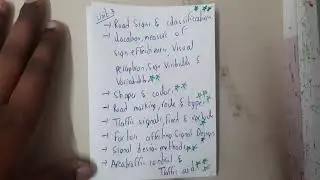 Unit 3
→ Road Signs & classification
→ Location, measure of
sign effectiveness Visual
perception, Sign Visibility &
Variables
→ Shapes & color.
→ Road marking, role & type.
→ Traffic signals, fixed &
→ Factors affecting Signal Design
→ Signal design method
→ Area traffic control &
Traffic